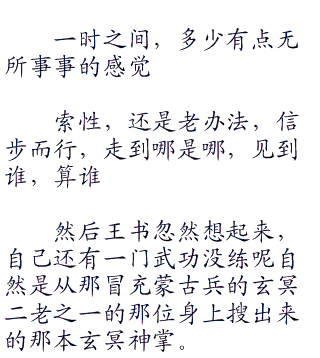 一时之间，多少有点无
所事事的感觉
索性，还是老办法，信
步而行，走到哪是哪，见到
谁，算谁
然后王书忽然想起来，
自己还有一门武功没练呢自
然是从那冒充蒙古兵的玄冥
二老之一的那位身上搜出来
的那本玄冥神掌。